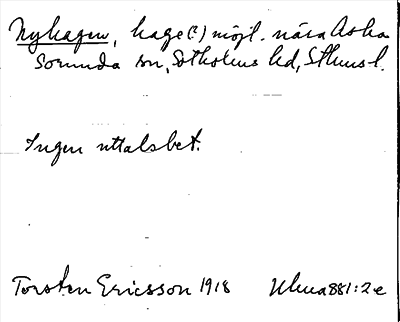 Nyhagen, hage(?) möjl. nära Aska
Sorunda sn, Sotholms hd, Sthms l.
Ingen uttalsbet.
Torsten Ericsson 1918 Ulma 881:2e